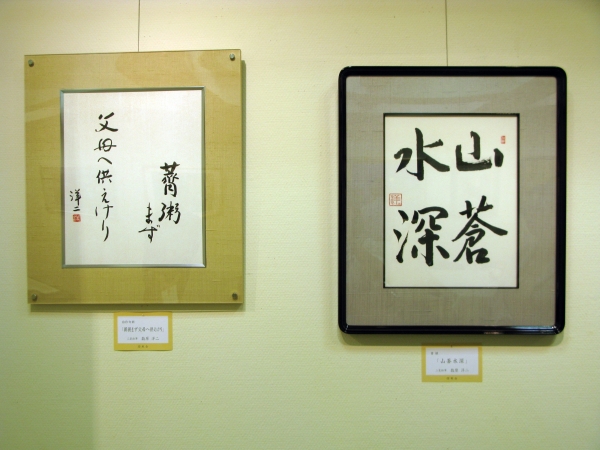 薺粥
まず
父母へ供えけり
洋二
山蒼
水深
「薺粥まず父母へ供えけり」
「山蒼水深」